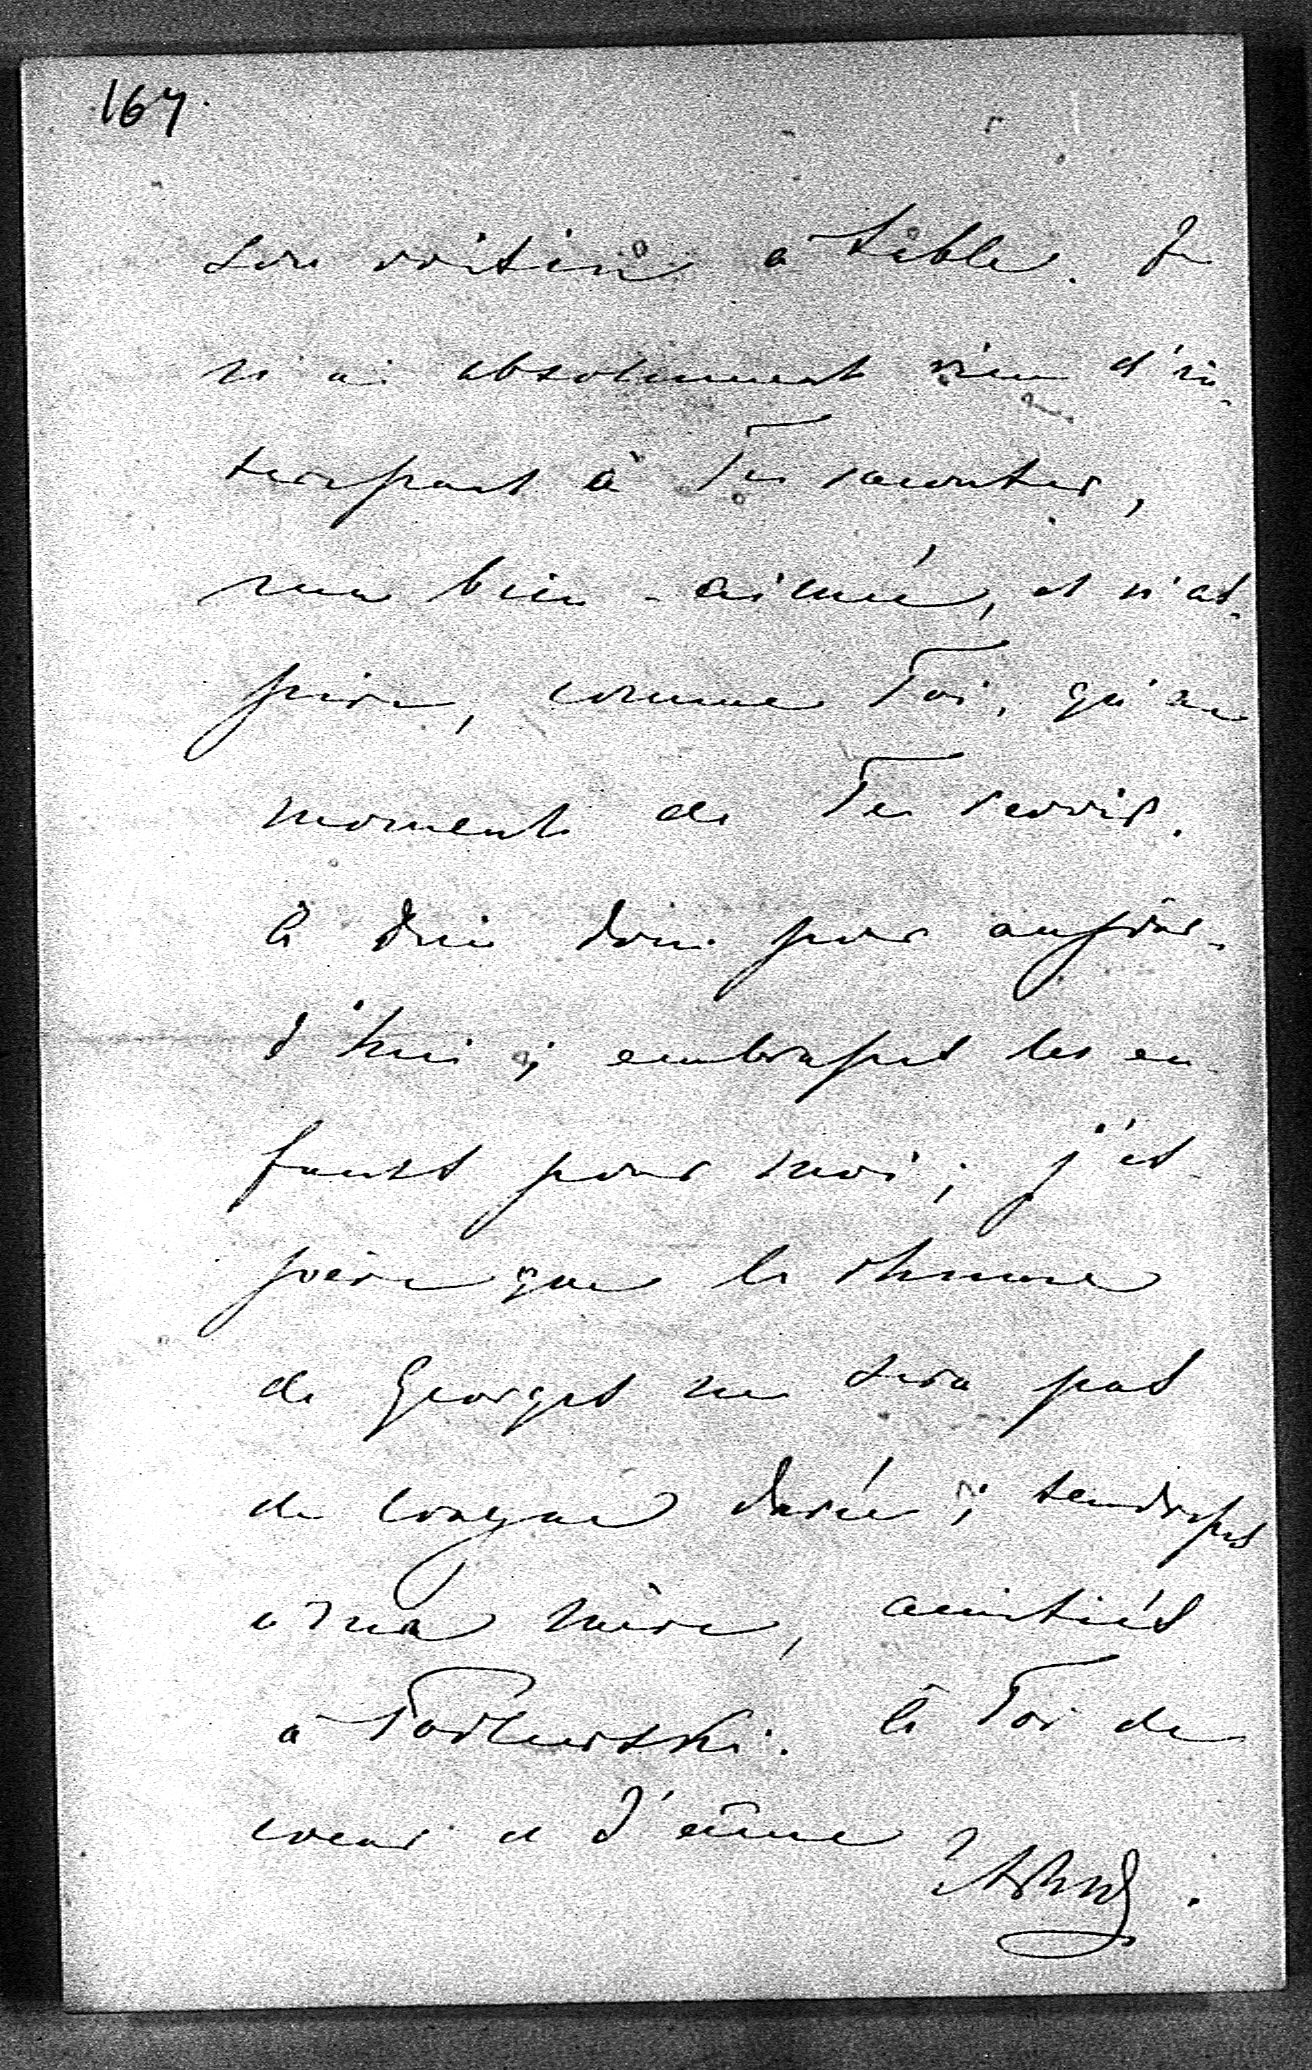 167.
son voisin à table. Je
n'ai absolument rien d'in-
teressant à Te raconter,
ma bien-aimée, et n'as-
pire, comme Toi, qu'au
moment de Te revoir.
à Dieu donc pour aujour-
d'hui; embrasses les en-
fants pour moi; j'es-
père que le rhume
de Georges ne sera pas
de longue durée; tendresses
à ma mère, amitiés
à . à Toi de
coeur et d'âme